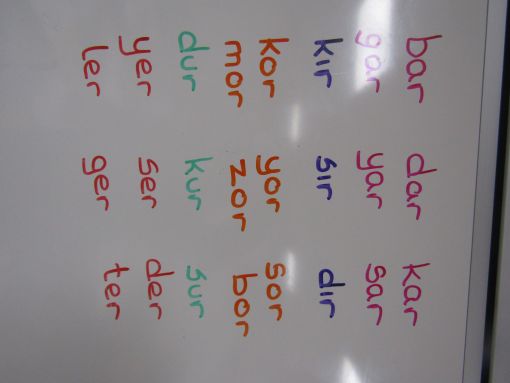 bar dar kar
gar yar sar
kır sır dır
kor yor sor
mor zor bor
dur kur sur
yer ser der
ler ger ter